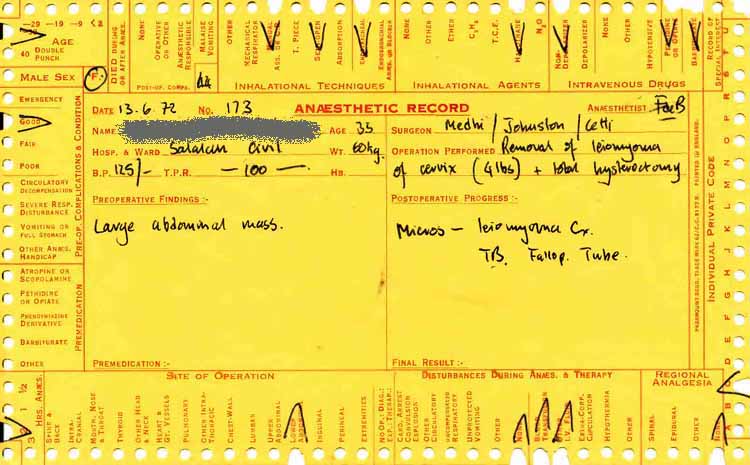 29 -19 -9 <2
AGE
40 DOUBLE PUNCH
MALE SEX F.
DIED DURING OR AFTER ANÆS.
NONE
OPERATIVE OR OTHER
ANÆSTHETIST RESPONSIBILITY
MALAISE VOMITING
OTHER
POST-OP. COMPS.
MECHANICAL RESPIRATOR
T. PIECE
ABSORPTION
OTHER
INHALATIONAL TECHNIQUES
NONE
OTHER
ETHER
C₃H₆
T.C.E.
N₂O
INHALATIONAL AGENTS
NONE
DEPOLARIZER
NONE
OTHER
HYPOTENSIVE
INTRAVENOUS DRUGS
RECORD OF SPECIAL INTEREST
EMERGENCY
GOOD
FAIR
POOR
CIRCULATORY DECOMPENSATION
SEVERE RESP. DISTURBANCE
VOMITING OR FULL STOMACH
OTHER ANÆS. HANDICAP
PRE-OP. COMPLICATIONS & CONDITION
ATROPINE OR SCOPOLAMINE
PETHIDINE OR OPIATE
PHENOTHIAZINE DERIVATIVE
BARBITURATE
OTHER
PREMEDICATION
DATE 13.6.72 NO. 173 ANÆSTHETIC RECORD ANÆSTHETIST FaB
NAME AGE 35 SURGEON Medhi / Johnston / Cetti
HOSP. & WARD Salalah Civil WT. 60kg. OPERATION PERFORMED Removal of leiomyoma
B.P. 125/- T.P.R. — 100 — HB. of cervix (4lbs) + total hysterectomy
PREOPERATIVE FINDINGS :-
Large abdominal mass.
POSTOPERATIVE PROGRESS :-
Micros - leiomyoma Cx.
TB. Fallop. Tube.
PREMEDICATION :-
FINAL RESULT :-
PRINTED IN ENGLAND.
INDIVIDUAL PRIVATE CODE
SITE OF OPERATION
DISTURBANCES DURING ANÆS. & THERAPY
REGIONAL ANALGESIA
3 1 ½
HRS. ANÆS.
SPINE & BACK
INTRA-CRANIAL
MOUTH, NOSE & THROAT
THYROID
OTHER HEAD & NECK
HEART & GT. VESSELS
PULMONARY
OTHER INTRA-THORACIC
CHEST-WALL
LUMBAR
UPPER ABDOMINAL
LOWER ABDOM.
INGUINAL
PERINEAL
EXTREMITIES
NO OP., DIAG.: EXT. THERAP.:
CARD. ARREST
CONVULSION EXCESSIVE
OTHER CIRCULATORY
UNEXPECTED RESPIRATORY
VOMITING
OTHER
EXTRA-CORP. CIRCULATION
HYPOTHERMIA
OTHER
SPINAL
EPIDURAL
OTHER